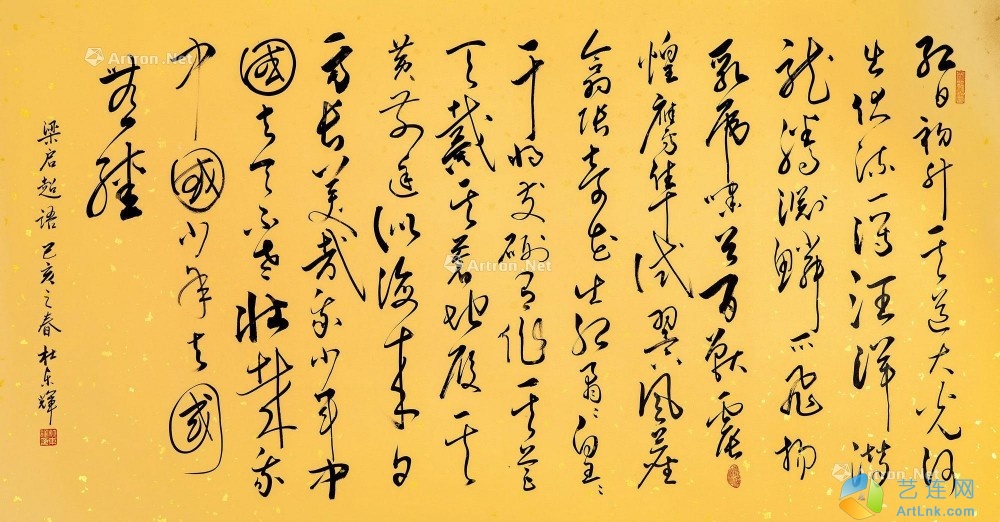 红日初升其道大光河
出伏流一泻汪洋潜
龙腾渊鳞爪飞扬
乳虎啸谷百兽震
惶鹰隼试翼风尘
翕张奇花矞々皇々
干将发硎有作其芒
天戴其苍地履其
黄前途似海来日
方长美哉我少年中
國与天不老壮哉我
中國少年与國
無疆
梁启超语 己亥之春 杜东辉
Artron.Net
Artron.Net
Artron.Net
Artron.Net
艺连网
ArtLnk.com